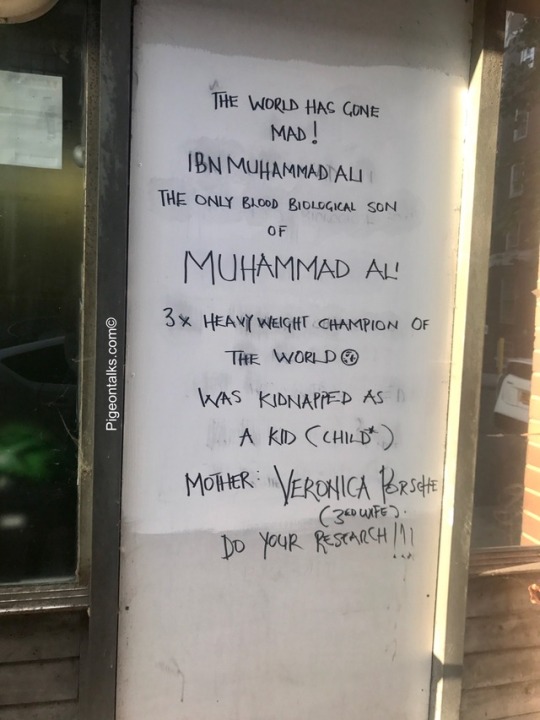 THE WORLD HAS GONE
MAD!
IBN MUHAMMAD ALI
THE ONLY BLOOD BIOLOGICAL SON
OF
MUHAMMAD ALI
3x HEAVY WEIGHT CHAMPION OF
THE WORLD
WAS KIDNAPPED AS
A KID (CHILD*)
MOTHER: VERONICA PORSCHE
(3RD WIFE).
DO YOUR RESEARCH!!!
Pigeontalks.com©